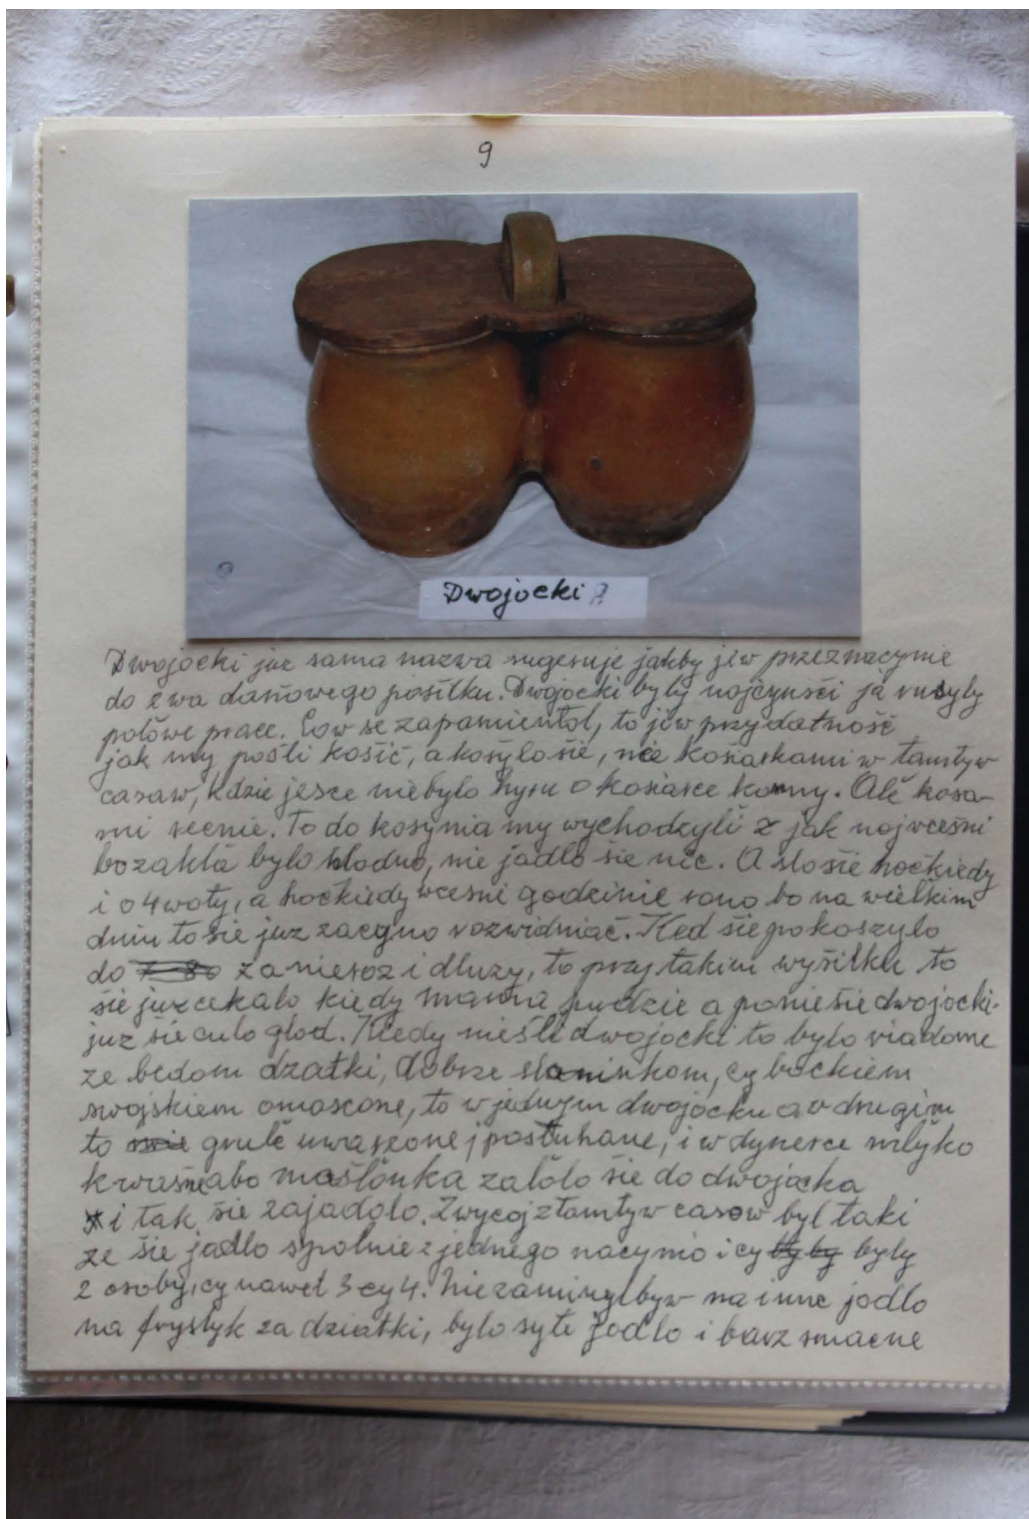 9
Dwojocki
Dwojocki juz sama nazwa sugeruje jakby jiw przeznacynie
do dwa daniowego posiłku. Dwojocki były nojczynści ja
polowe prace. Cow se zapamientoł, to jiw przydatność
jak my pośli kosić, a kosyło sie, nie kosiarkami w tamtyw
casaw, kdzie jesce niebyło hyru o kosiarce konny. Ale kosa-
mi recnie. To do kosynia my wychodzyli z jak nojwceśni
bo zaktla było hłodno, nie jadło śie nic. A słośie hockiedy
i o 4 woty, a hockiedy wceśni godzinie rano bo na wielkim
dniu to śie juz zacyno rozwidniać. Ked śie pokoszyło
do 7-80 zanieroz i dłuzy, to przy takim wyśiłku to
śie juz cekało kiedy mamna pudzie a poniesie dwojocki.
juz śie culo głod. Kiedy nieśli dwojocki to było viadome
ze bedom dzatki, dobrze słoninkom, cy bockiem
swojskiem omascone, to w jednym dwojocku a v drugim
to grule uwarzone i postuhane, i w dynerce mlyko
kwaśne abo maślonka zaloło śie do dwojacka
i tak śie zajadoło. Zwycoj z tamtyw casow był taki
ze śie jadło spolnie z jednego nacynio i cy by by były
2 osoby, cy nawet 3 cy 4. Niezaminyłbyw na inne jodło
na frystyk za dziatki, było syte jodło i barz smacne